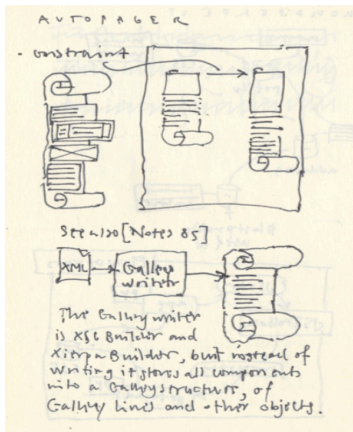 AUTOPAGER
- constraint
See also [Notes 85]
XML
Galley
Writer
The Galley writer
is XSL Builder and
Xierpa Builder, but instead of
writing it stores all components
into a Galley structure, of
Galley Lines and other objects.